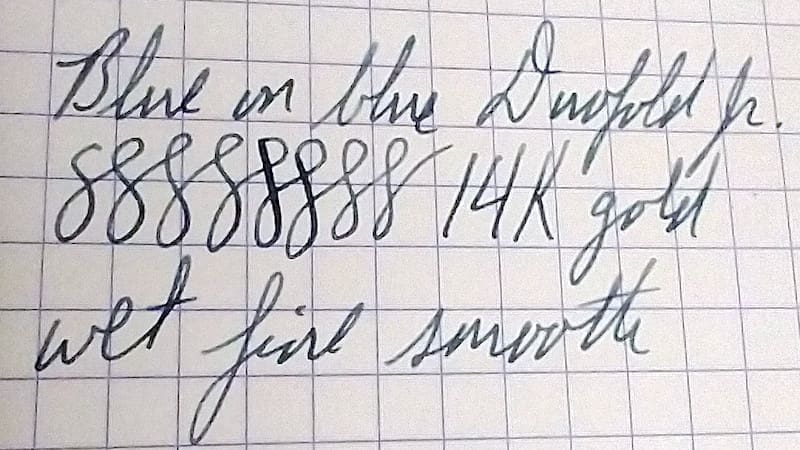 Blue on blue Duofold Jr.
88888888 14K gold
wet fine smooth